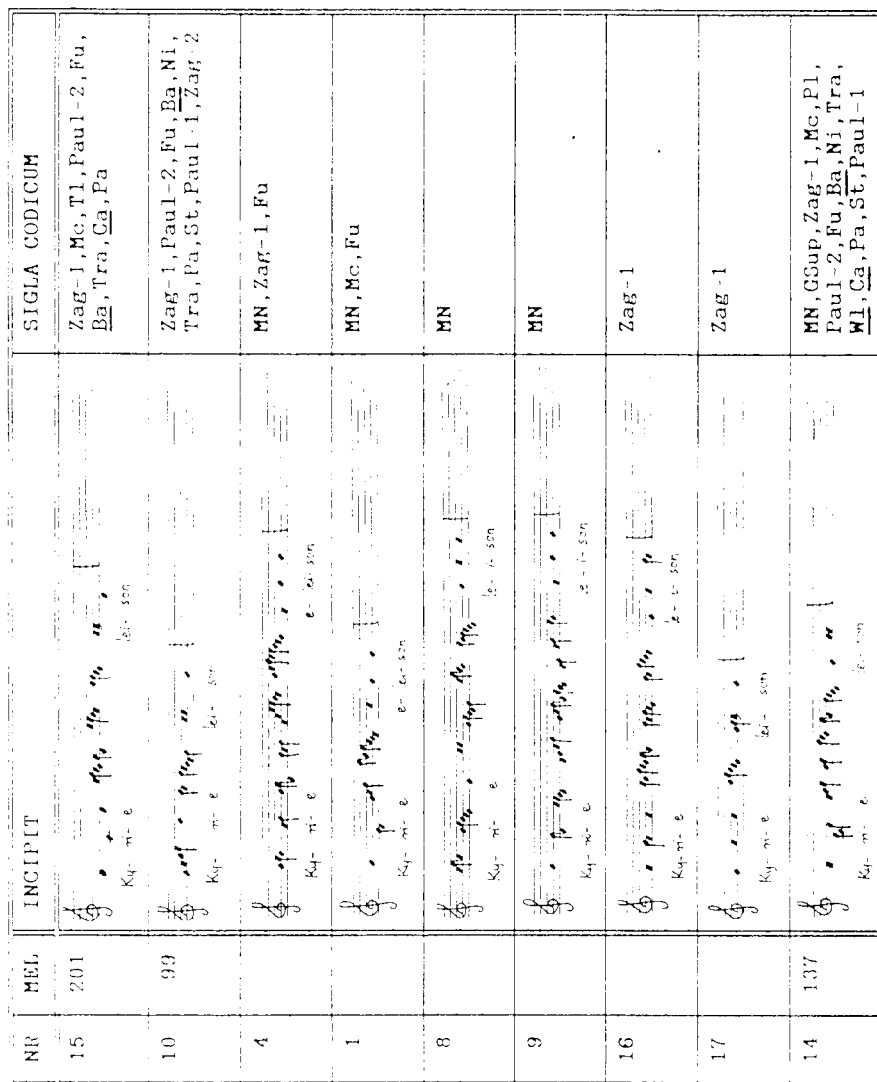 NR MEL INCIPIT SIGLA CODICUM
15 201 Ky- ri- e lei- son Zag-1,Mc,Tl,Paul-2,Fu,
Ba,Tra,Ca,Pa
10 99 Ky- ri- e lei- son Zag-1,Paul-2,Fu,Ba,Ni,
Tra,Pa,St,Paul-1,Zag-2
4 Ky- ri- e e- lei- son MN,Zag-1,Fu
1 Ky- ri- e e- lei- son MN,Mc,Fu
8 Ky- ri- e le- i- son MN
9 Ky- ri- e le- i- son MN
16 Ky- ri- e le- i- son Zag-1
17 Ky- ri- e lei- son Zag-1
14 137 Ky- ri- e lei- son MN,GSup,Zag-1,Mc,Pl,
Paul-2,Fu,Ba,Ni,Tra,
Wl,Ca,Pa,St,Paul-1